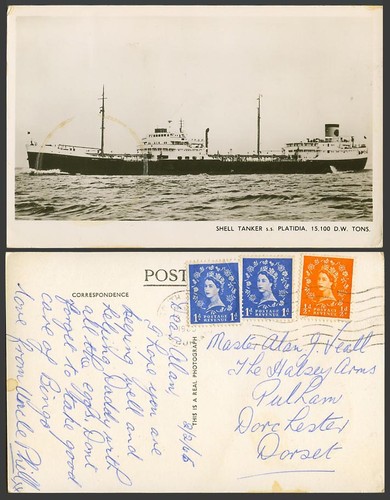 SHELL TANKER s.s. PLATIDIA. 15,100 D.W. TONS.
POST
CORRESPONDENCE
THIS IS A REAL PHOTOGRAPH
Dear Alan,
I hope you are
keeping well and
helping Daddy with
all the eggs. Dont
forget to take good
care of Bingo
love from Uncle
POSTAGE REVENUE
1D 1D
POSTAGE REVENUE
1D 1D
POSTAGE REVENUE
½D ½D
Master Alan J. Veall
The Halsey Arms
Pulham
Dorchester
Dorset